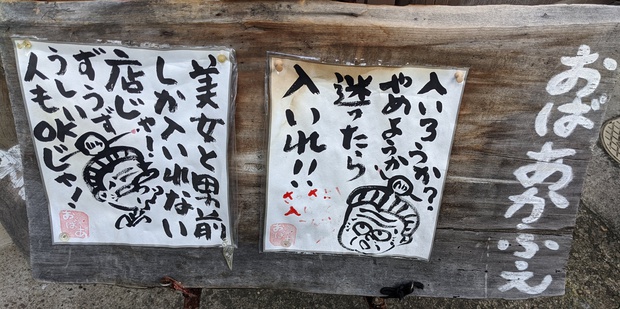 おばあかふぇ
入いろうか?
やめようか
迷ったら
入いれ!!
美女と男前
しか入いれない
店じゃー!
ずうず
うしい
人もOKじゃ!